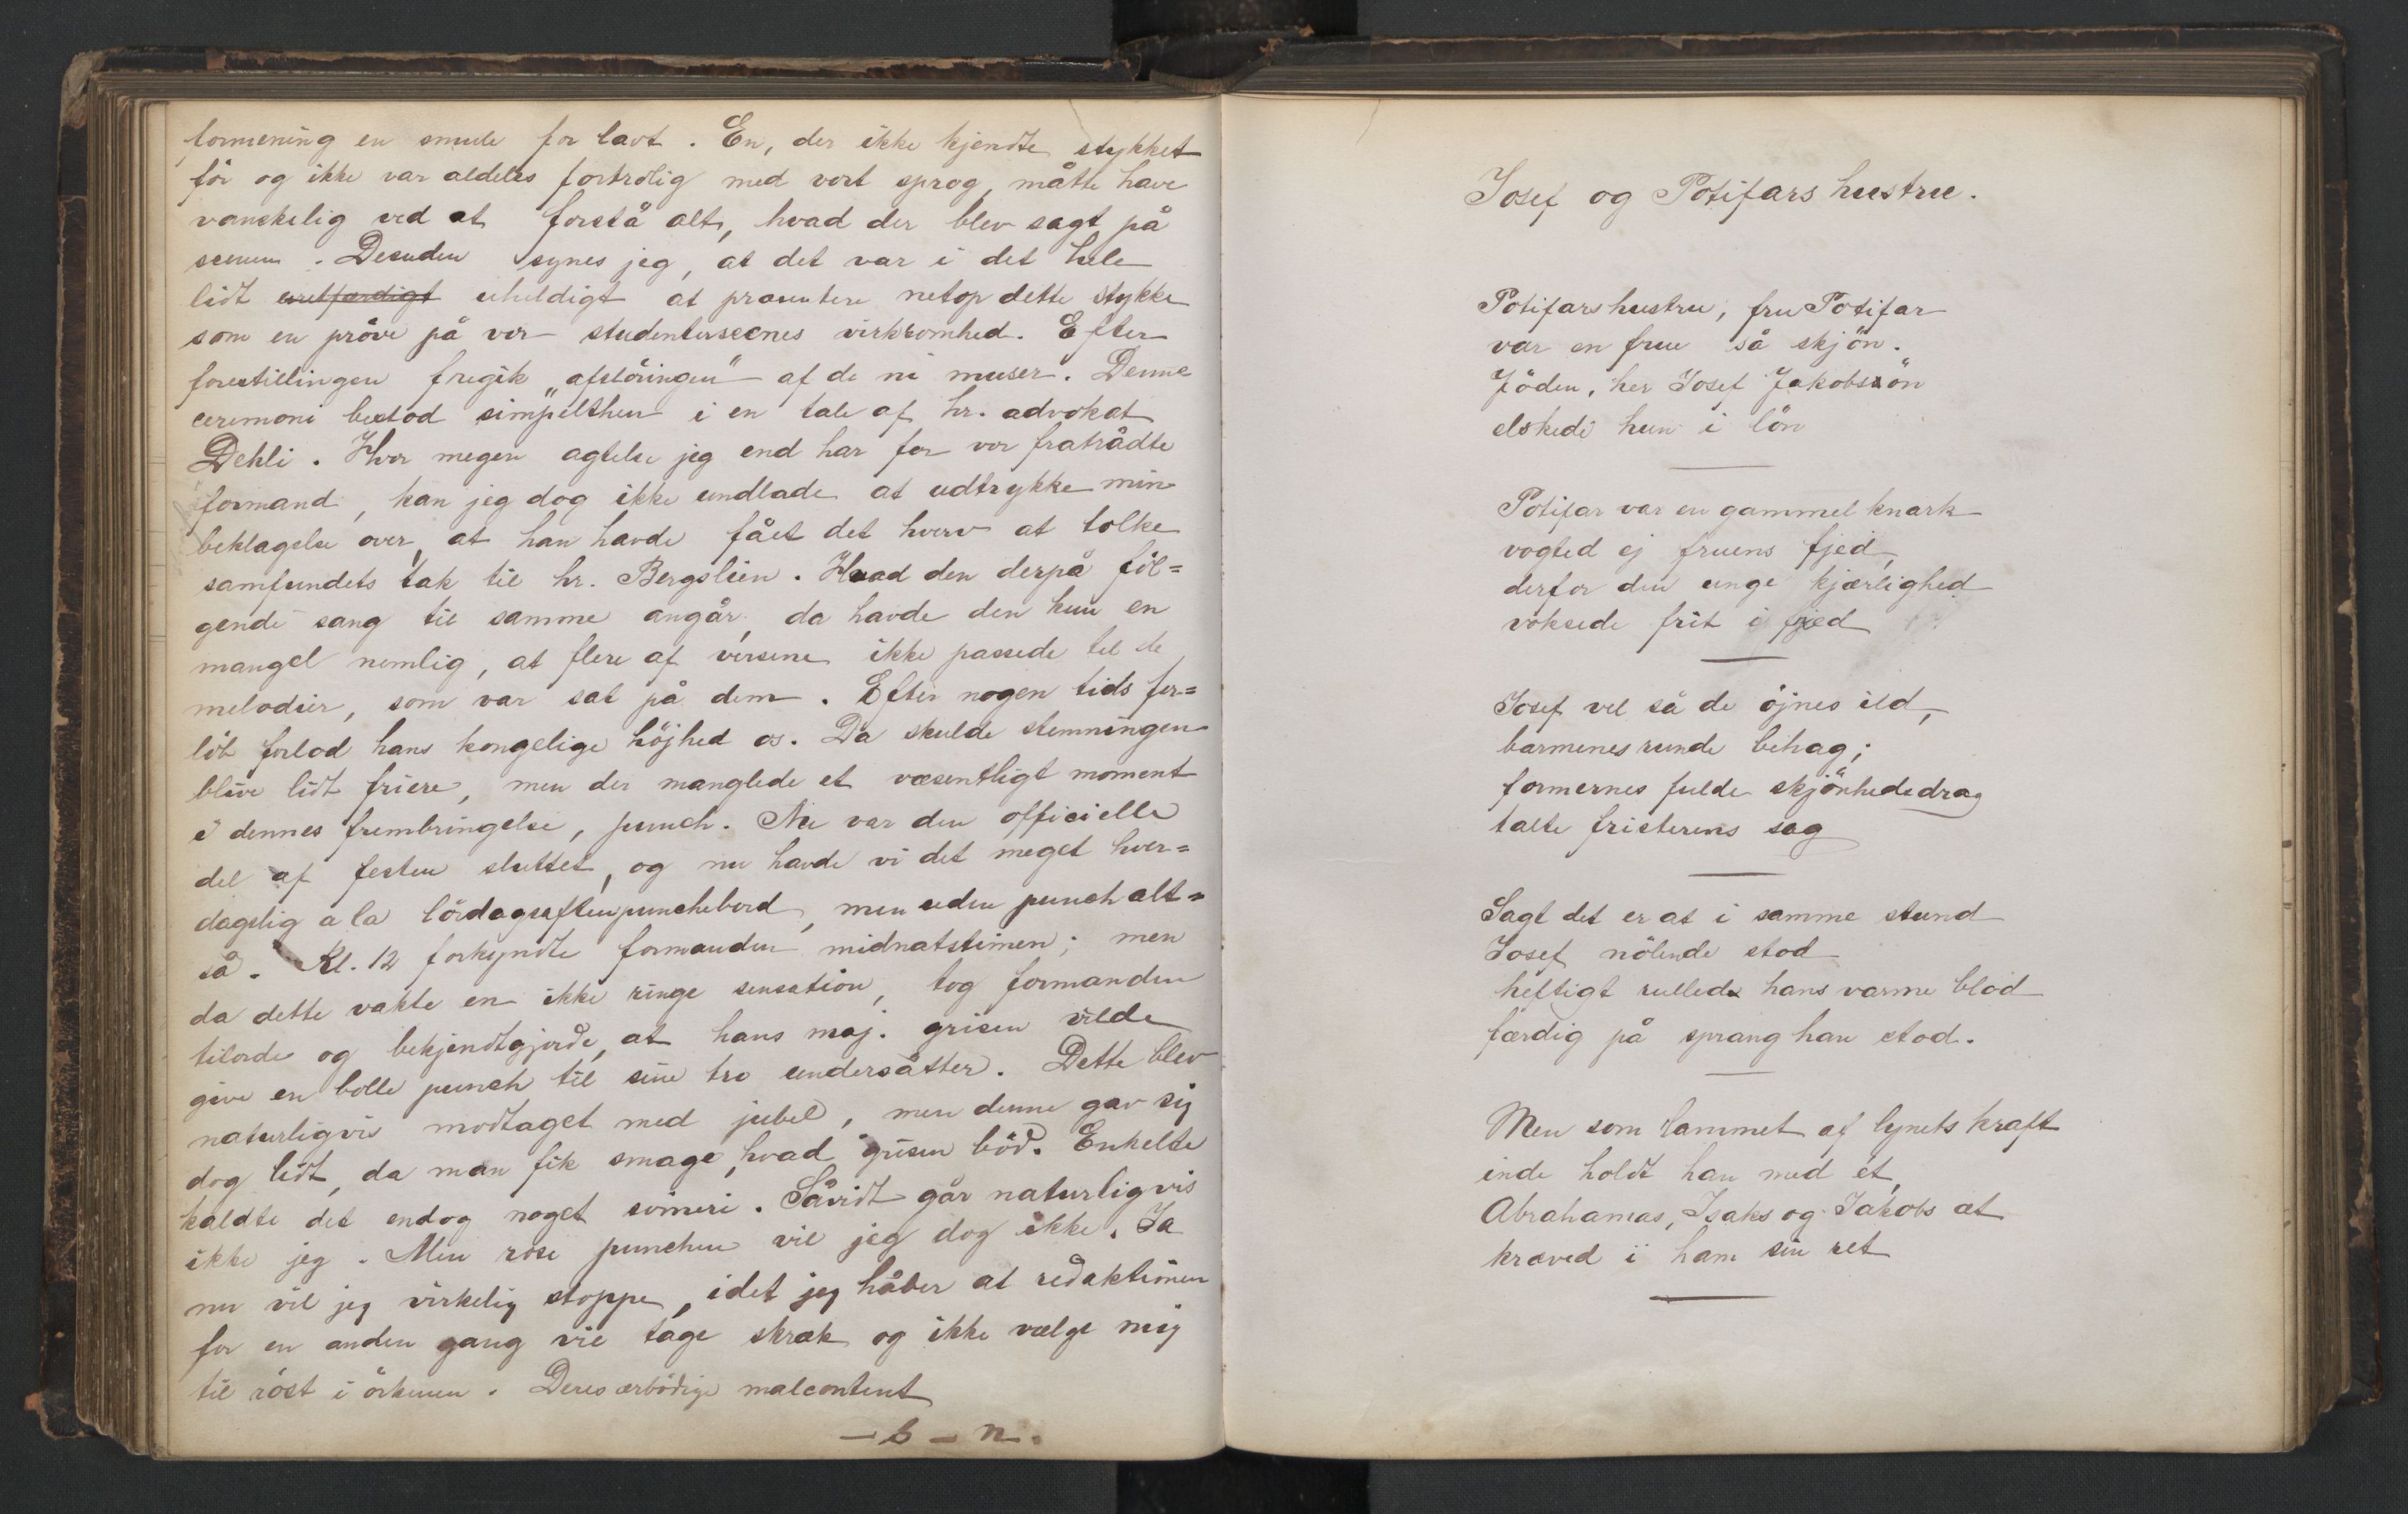 formening en smule for lavt. En, der ikke kjendte stykket
för og ikke var aldeles fortrolig med vort sprog, måtte have
vanskelig ved at forstå alt, hvad der blev sagt på
scenen. Desuden synes jeg, at det var i det hele
lidt uretfærdigt uheldigt at præsentere netop dette stykke
som en pröve på vor studenterscenes virksomhed. Efter
forestillingen fregik „afslöringen" af de ni muser. Denne
ceremoni bestod simpelthen i en tale af hr. advokat
Dehli. Hvor megen agtelse jeg end har for vor fratrådte
formand, kan jeg dog ikke undlade at udtrykke min
beklagelse over, at han havde fået det hverv at tolke
samfundets tak til hr. Bergslien. Hvad den derpå föl=
gende sang til samme angår, da havde den kun en
mangel nemlig, at flere af versene ikke passede til de
melodier, som var sat på dem. Efter nogen tids for=
löb forlod hans kongelige höjhed os. Da skulde stemningen
blive lidt friere, men der manglede et væsentligt moment
i dennes frembringelse, punch. Nu var den officielle
del af festen sluttet, og nu havde vi det meget hver=
dagslig a la lördagsaftenpunchebord, men uden punch alt=
så. Kl. 12 forkyndte formanden midnatstimen; men
da dette vakte en ikke ringe sensation, tog formanden
tilorde og bekjendtgjorde, at hans maj. grisen vilde
give en bolle punch til sine tro undersåtter. Dette blev
naturligvis modtaget med jubel, men denne gav sig
dog lidt, da man fik smage, hvad grisen böd. Enkelte
kaldte det endog noget svineri. Såvidt går naturligvis
ikke jeg. Men rose punchen vil jeg dog ikke. Ja
nu vil jeg virkelig stoppe, idet jeg håber at redaktionen
for en anden gang vil tage skræk og ikke vælge mig
til röst i örkenen. Deres ærbödige malcontent
– s – n.
Josef og Potifars hustru.
Potifars hustru, fru Potifar
var en frue så skjön.
Jöden, her Josef Jakobssön
elskede hun i lön
Potifar var en gammel knark
vogted ej fruens fjed,
derfor den unge kjærlighed
voksede frit i fjed
Josef vel så de öjnes ild,
barmenes runde behag;
formernes fulde skjönhedsdrag
talte fristerens sag
Sagt det er at i samme stund
Josef nölende stod
heftigt rulled hans varme blod
færdig på sprang han stod.
Men som lammet af lynets kraft
inde holdt han med et,
Abrahamas, Isaks og Jakobs æt
kræved i ham sin ret